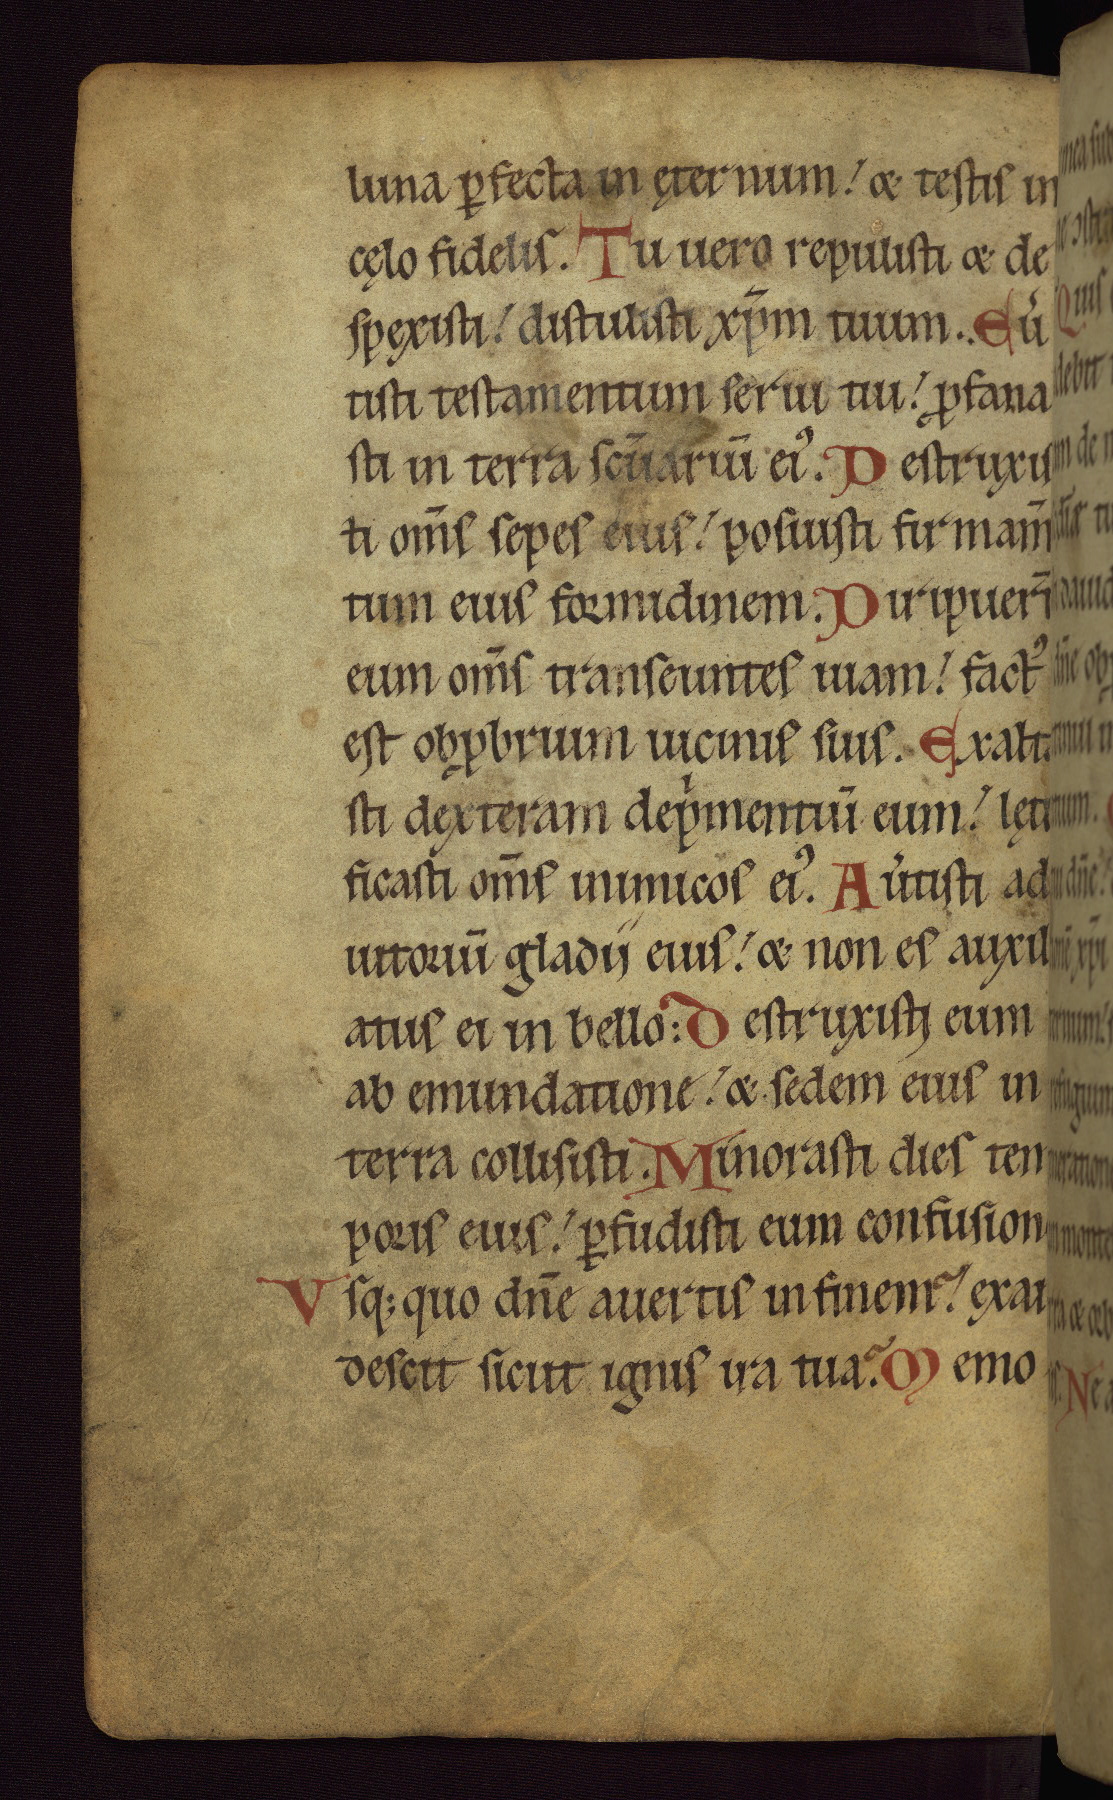 luna ꝑfecta in ęternum! & testis in
cęlo fidelis. Tu uero repulisti & de
spęxisti! distulisti xp̄m tuum. Eu͛
tisti testamentum serui tui! ꝓfana
sti in terra scūariū eiꝰ. Destruxis
ti om̄s sepes eius! posuisti firmam̄
tum eius formidinem. Diripuer̄
eum om̄s transeuntes uiam! factꝰ
est obꝓbrium uicinis suis. Exalta
sti dexteram dep̍mentiū eum! lęti
ficasti om̄s inimicos eiꝰ. Au͛tisti ad
iutoriū gladij eius! & non es auxili
atus ei in bello: Destruxisti eum
ab emundatione! & sedem eius in
terra collisisti. Minorasti dies tem
poris eius! ꝑfudisti eum confusion
Vsq; quo dn̄e auertis in finem? exar
descit sicut ignis ira tua? Memo